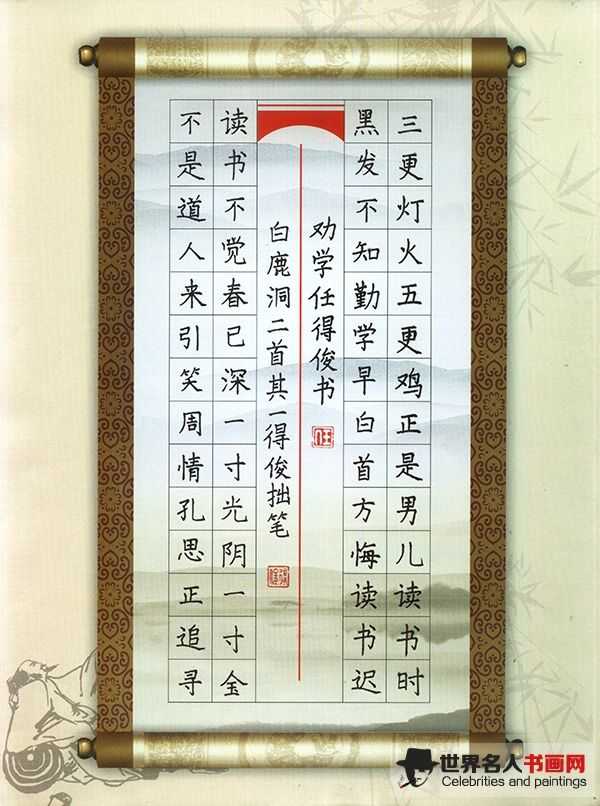 三更灯火五更鸡正是男儿读书时
黑发不知勤学早白首方悔读书迟
劝学任得俊书
白鹿洞二首其一得俊拙笔
读书不觉春已深一寸光阴一寸金
不是道人来引笑周情孔思正追寻
世界名人书画网
Celebrities and paintings